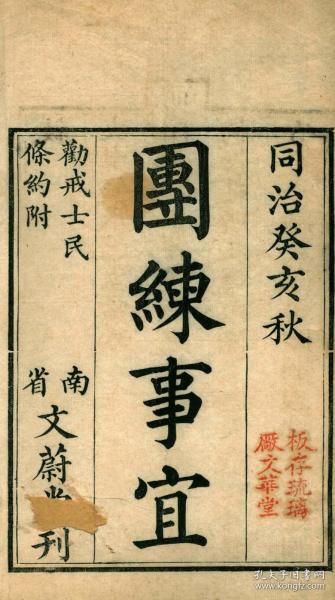 同治癸亥秋
板存琉璃
廠文華堂
團練事宜
勸戒士民
條約附
南省
文蔚堂刊
孔夫子旧书网